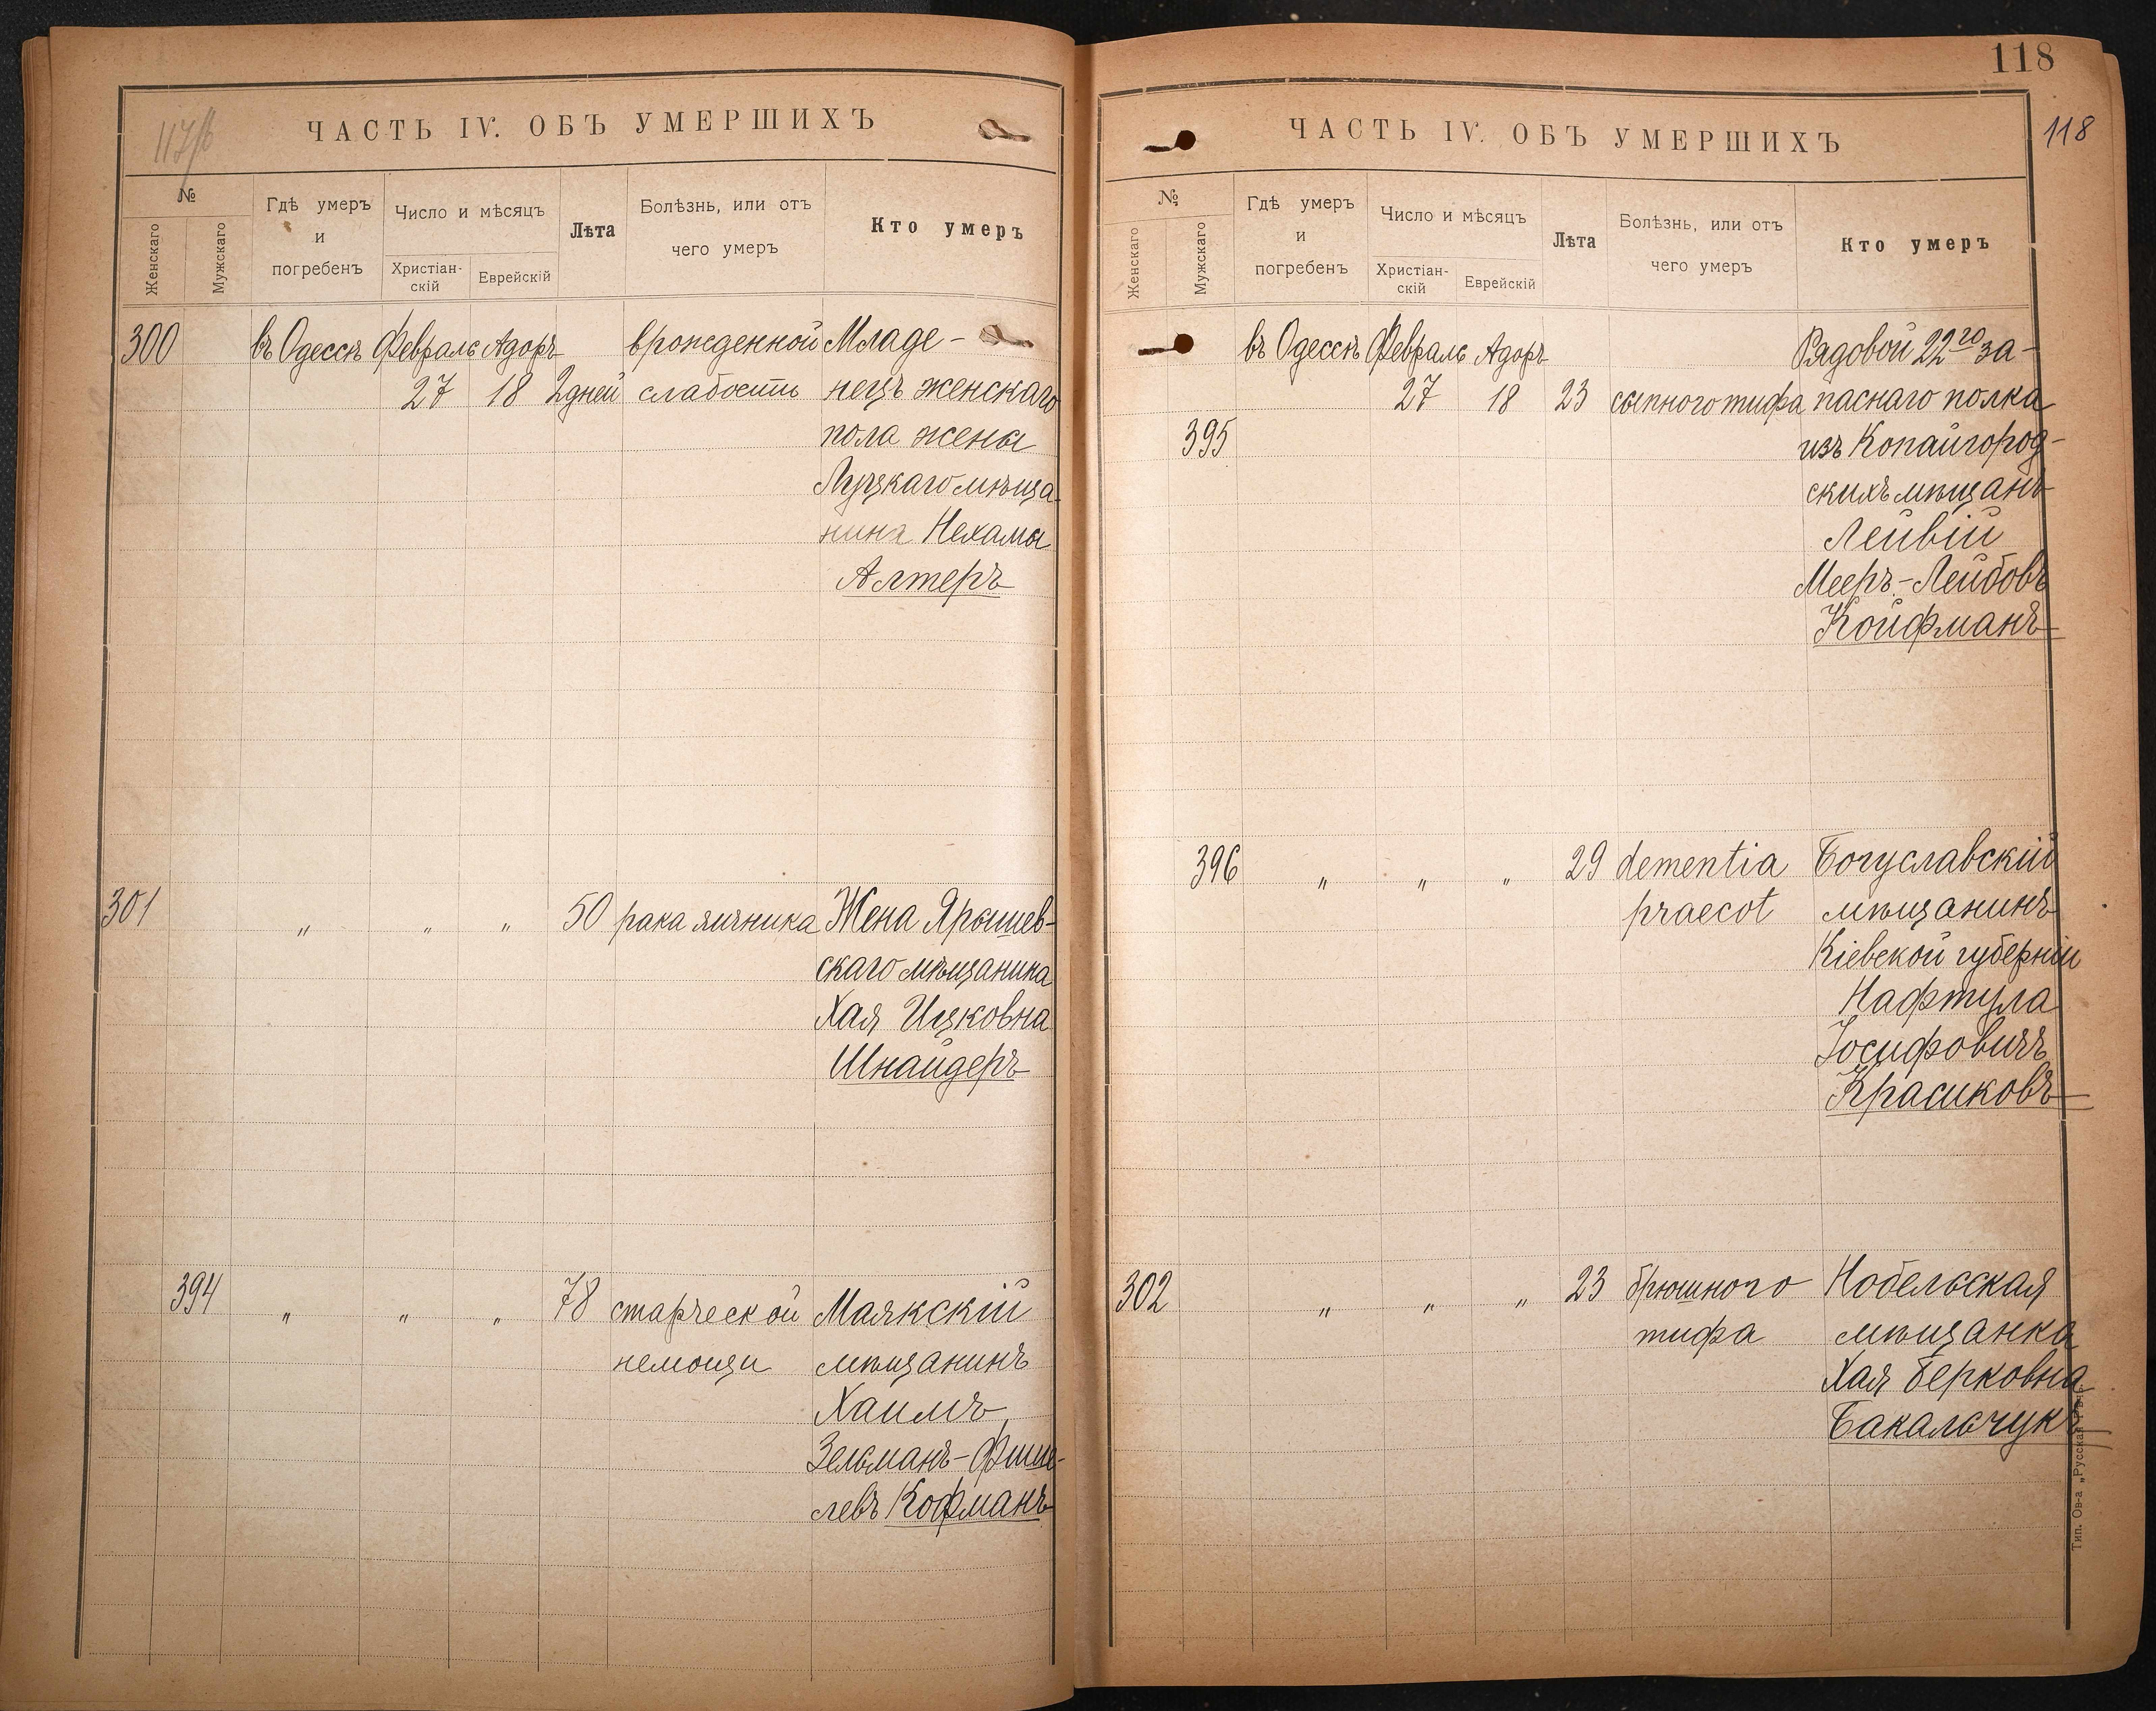 117/б
ЧАСТЬ IV. ОБЪ УМЕРШИХЪ
№
Женскаго
Мужскаго
Гдѣ умеръ
и
погребенъ
Число и мѣсяцъ
Христіан-
скій
Еврейскій
Лѣта
Болѣзнь, или отъ
чего умеръ
Кто умеръ
300 въ Одессѣ Февраль Адоръ врожденной Младе-
27 18 2 дней слабости нецъ женскаго
пола жены
Луцкаго мѣща-
нина Нехамы
Алтеръ
301 " " " 50 рака яичника Жена Ярышев-
скаго мѣщанина
Хая Ицковна
Шнайдеръ
394 " " " 78 старческой Маякскій
немощи мѣщанинъ
Хаимъ
Зельманъ-Фише-
левъ Кофманъ
118
118
ЧАСТЬ IV. ОБЪ УМЕРШИХЪ
№
Женскаго
Мужскаго
Гдѣ умеръ
и
погребенъ
Число и мѣсяцъ
Христіан-
скій
Еврейскій
Лѣта
Болѣзнь, или отъ
чего умеръ
Кто умеръ
въ Одессѣ Февраль Адоръ Рядовой 22го за-
27 18 23 сыпного тифа паснаго полка
395 изъ Копайгород-
скихъ мѣщанъ
Лейвій
Мееръ-Лейбовъ
Койфманъ
396 " " " 29 dementia Богуславскій
praecot мѣщанинъ
Кіевской губерніи
Нафтула
Іосифовичъ
Красиковъ
302 " " " 23 брюшного Нобельская
тифа мѣщанка
Хая Берковна
Бакальчукъ
Тип. Ов-а „Русская Рѣчь.